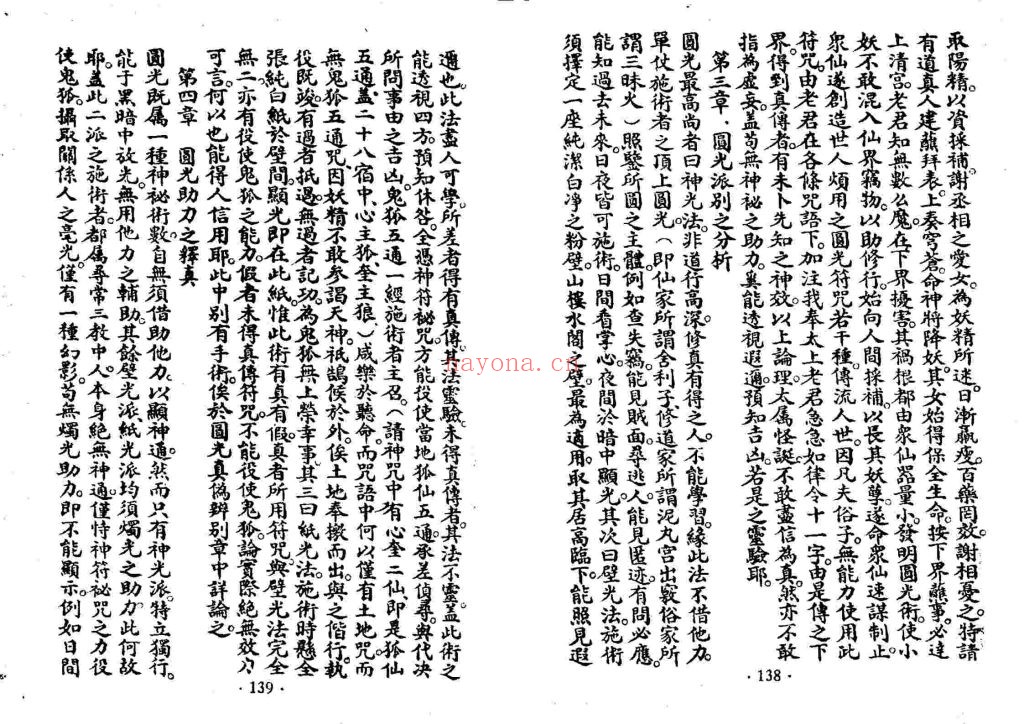 取陽精。以資採補。謝丞相之愛女。為妖精所迷。日漸羸瘦。百藥罔效。謝相憂之。特請
有道真人建醮拜表。上奏穹蒼。命神將降妖。其女始得保全生命。按下界醮事。必達
上清宮。老君知無數么魔。在下界擾害。其禍根都由衆仙器量小。發明圓光術。使小
妖不敢混入仙界竊物。以助修行。始向人間採補。以長其妖孽。遂命衆仙速謀制止。
衆仙遂創造世人煩用之圓光符咒若干種。傳流人世。因凡夫俗子。無能力使用此
符咒。由老君在各條咒語下。加注我奉太上老君急急如律令十一字。由是傳之下
界。得到真傳者。有未卜先知之神效。以上論理。太属怪誕。不敢盡信為真。然亦不敢
指為虛妄。蓋苟無神秘之助力。奚能透視遐邇。預知吉凶。若是之靈驗耶。
第三章．圓光派別之分析
圓光最高尚者曰神光法。非道行高深。修真有得之人。不能學習。緣此法不借他力。
單仗施術者之頂上圓光（即仙家所謂舍利子。修道家所謂泥丸宮出竅。俗家所
謂三昧火）照鑒所圓之主體。例如查失竊。能見賊面。尋逃人。能見匿迹。有問必應。
能知過去未來。日夜皆可施術。日間看掌心。夜間於暗中顯光。其次曰壁光法。施術
須擇定一座純潔白淨之粉壁。山樓水閣之壁。最為適用。取其居高臨下。能照見遐
·138·
邇也。此法盡人可學。所差者。得有真傳。其法靈驗。未得真傳者。其法不靈。蓋此術之
能透視四方。預知休咎。全憑神符秘咒。方能役使當地狐仙五通。承差偵尋。與代決
所問事由之吉凶。鬼狐五通一經施術者主召。（請神咒中有心奎二仙。即是狐仙
五通。蓋二十八宿中。心主狐。奎主狼。）咸樂於聽命。而咒語中何以僅有土地咒。而
無鬼狐五通咒。因妖精不敢參謁天神。祇鵠候於外。俟土地奉檄而出。與之偕行。執
役既竣。有過者抵過。無過者記功。為鬼狐無上榮幸事。其三曰紙光法。施術時懸全
張純白紙於壁間。顯光即在此紙。惟此術有真有假。真者所用符咒。與壁光法完全
無二。亦有役使鬼狐之能力。假者未得真傳符咒。不能役使鬼狐。論實際絕無效力
可言。何以也能得人信用耶。此中別有手術。俟於圓光真偽辨別章中詳論之。
第四章　圓光助力之釋真
圓光既属一種神秘術數。自無須借助他力。以顯神通。然而只有神光派。特立獨行。
能于黑暗中放光。無用他力之輔助。其餘壁光派紙光派。均須燭光之助力。此何故
耶。蓋此二派之施術者。都属尋常三教中人。本身絕無神通。僅恃神符秘咒之力。役
使鬼狐。攝取關係人之亮光。僅有一種幻影。苟無燭光助力。即不能顯示。例如日間
·139·
nayona.cn